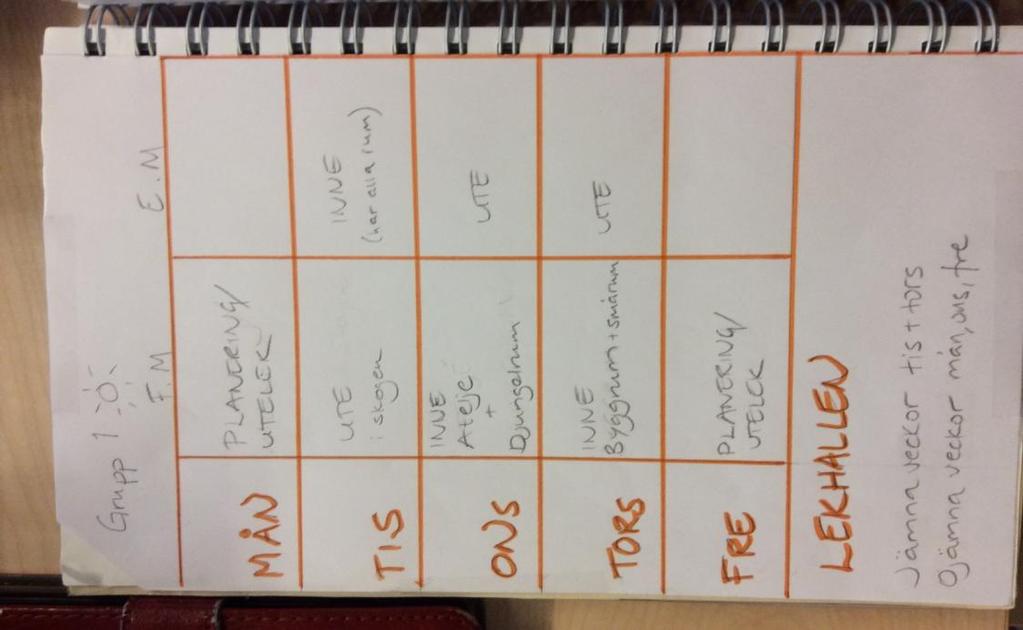 Grupp 1
F.M E.M
MÅN
PLANERING/
UTELEK
TIS
UTE
i skogen
INNE
(har alla rum)
ONS
INNE
Atelje
+
Djungelrum
UTE
TORS
INNE
Byggrum+smårum
UTE
FRE
PLANERING/
UTELEK
LEKHALLEN
Jämna veckor tis + tors
Ojämna veckor mån, ons, fre